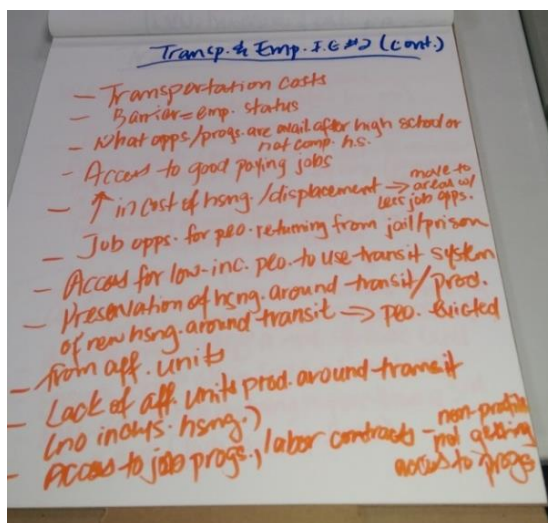 Transp. & Emp. I.E #2 (cont.)
- Transportation costs
- Barrier = emp. status
- What opps/progs. are avail after high school or
not comp. h.s.
- Access to good paying jobs
- ↑ in cost of hsng./displacement → move to
areas w/
less job opps.
- Job opps. for peo. returning from jail/prison
- Access for low-inc. peo. to use transit system
- Preservation of hsng. around transit/prod.
of new hsng. around transit → peo. evicted
- from aff. units
- Lack of aff. units prod. around transit
(no inclus. hsng.)
- Access to job progs., labor contracts - non-profits
not getting
access to progs